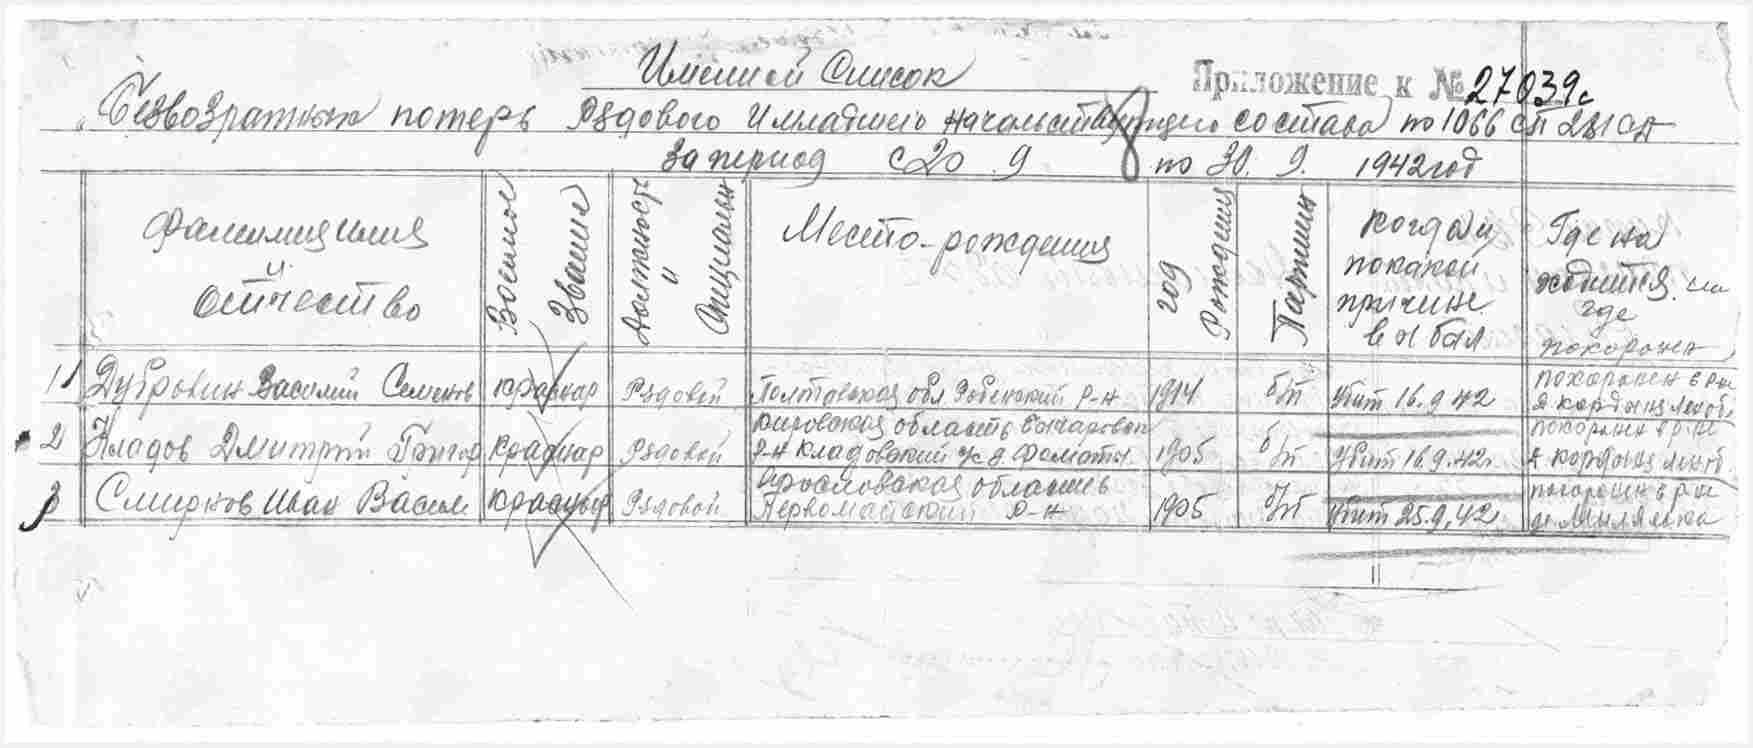 Именной Список
Приложение к № 27039с
Безвозратных потерь Рядового и младшего начальствующего состава по 1066 СП 281 СД
За период с 20 9 по 30. 9. 1942 год
Фамилия имя и отчество
Военное Звание
Должность и специальн
Место-рождения
год Рождения
Партийн
когда и по какой причине выбыл
Где находится или где похоронен
1 Дубровин Василий Семенов красноар Рядовой Полтовская обл Р-н 1914 б/п Убит 16.9.42 похоронен в р-не
2 Кладов Дмитрий Григор красноар Рядовой Кировская область Р-н Кладовский 1905 б/п Убит 16.9.42 похоронен в р-не
3 Смирнов Иван Васил красноар Рядовой Ярославская область Первомайский Р-н 1905 б/п Убит 25.9.42 похоронен в р-не